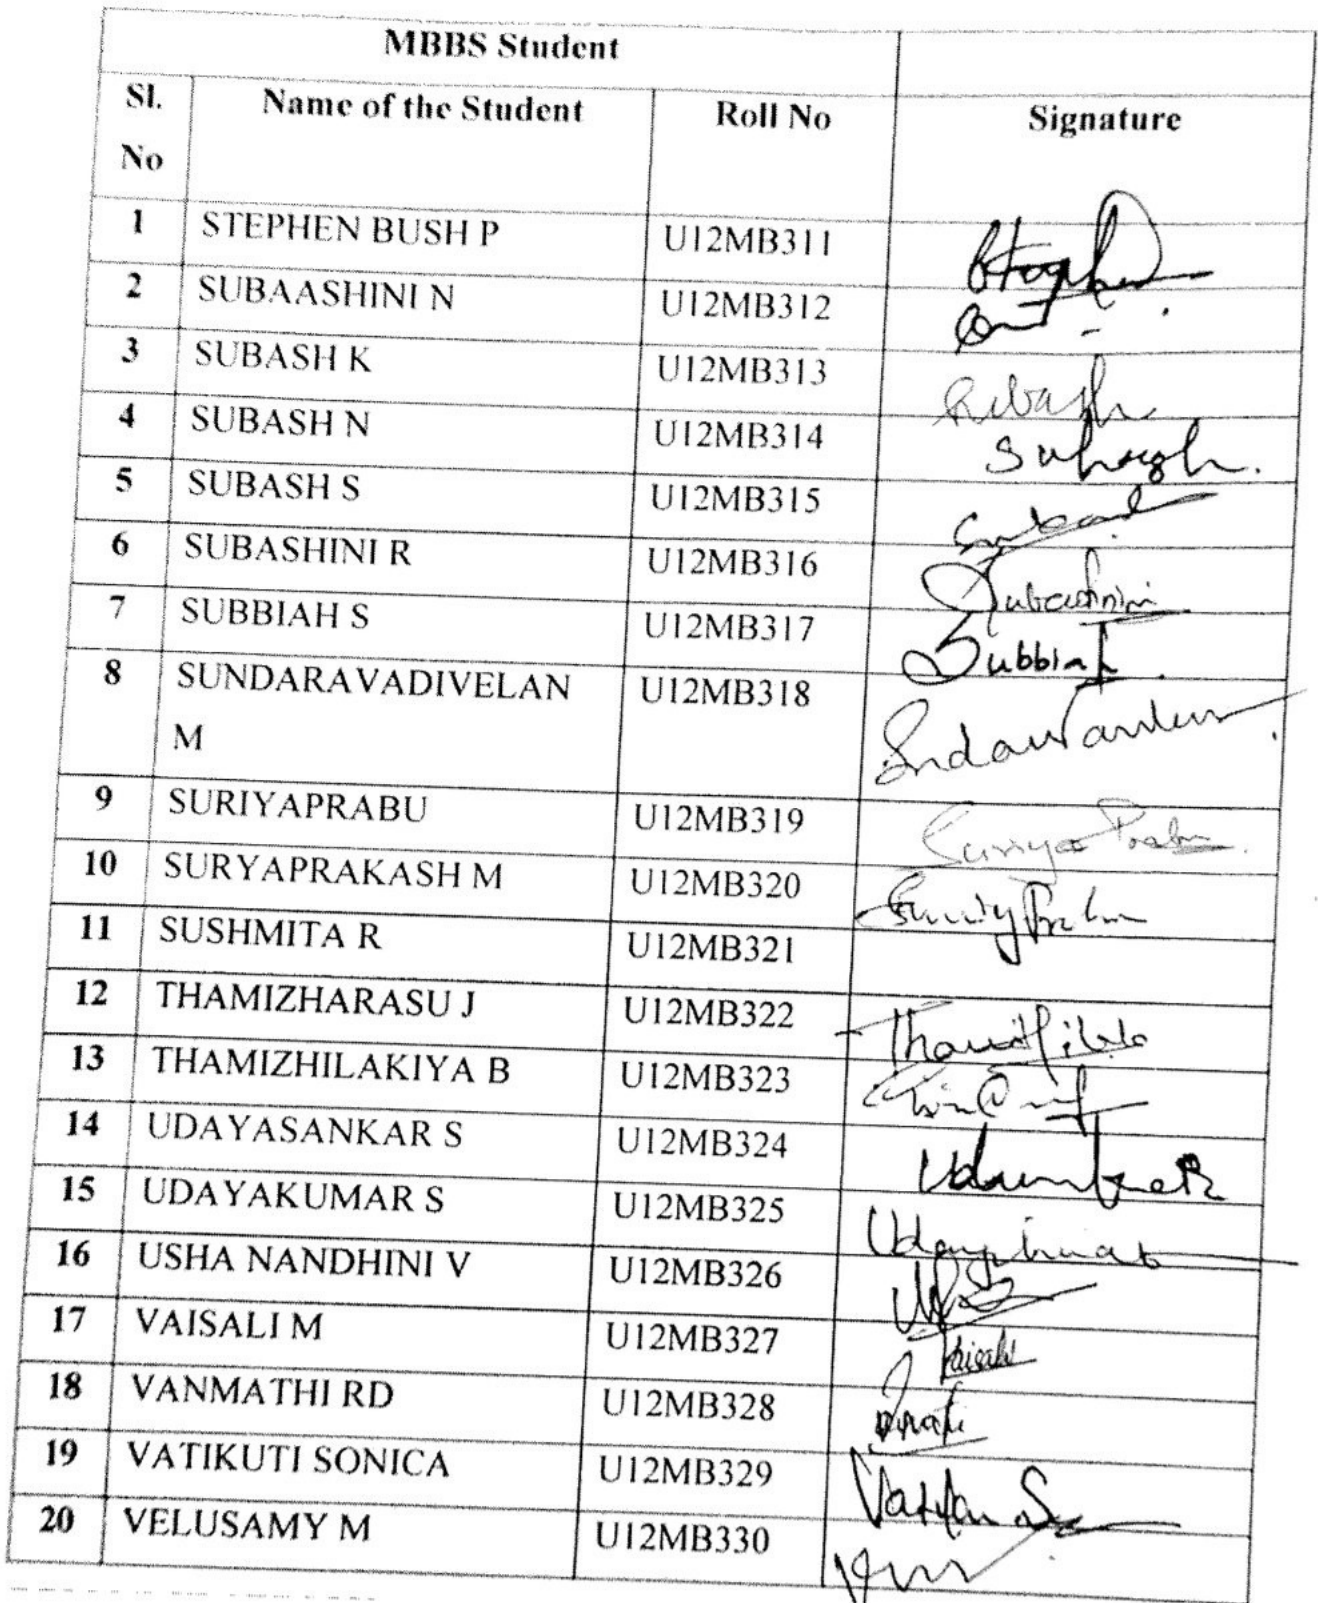 MBBS Student
Sl. No Name of the Student Roll No Signature
1 STEPHEN BUSH P U12MB311 Stephen
2 SUBAASHINI N U12MB312
3 SUBASH K U12MB313 Subash
4 SUBASH N U12MB314 Subash.
5 SUBASH S U12MB315
6 SUBASHINI R U12MB316 Subashini
7 SUBBIAH S U12MB317 Subbiah
8 SUNDARAVADIVELAN M U12MB318
9 SURIYAPRABU U12MB319 Suriya Prabu
10 SURYAPRAKASH M U12MB320
11 SUSHMITA R U12MB321
12 THAMIZHARASU J U12MB322
13 THAMIZHILAKIYA B U12MB323
14 UDAYASANKAR S U12MB324
15 UDAYAKUMAR S U12MB325
16 USHA NANDHINI V U12MB326
17 VAISALI M U12MB327 Vaisali
18 VANMATHI RD U12MB328
19 VATIKUTI SONICA U12MB329
20 VELUSAMY M U12MB330